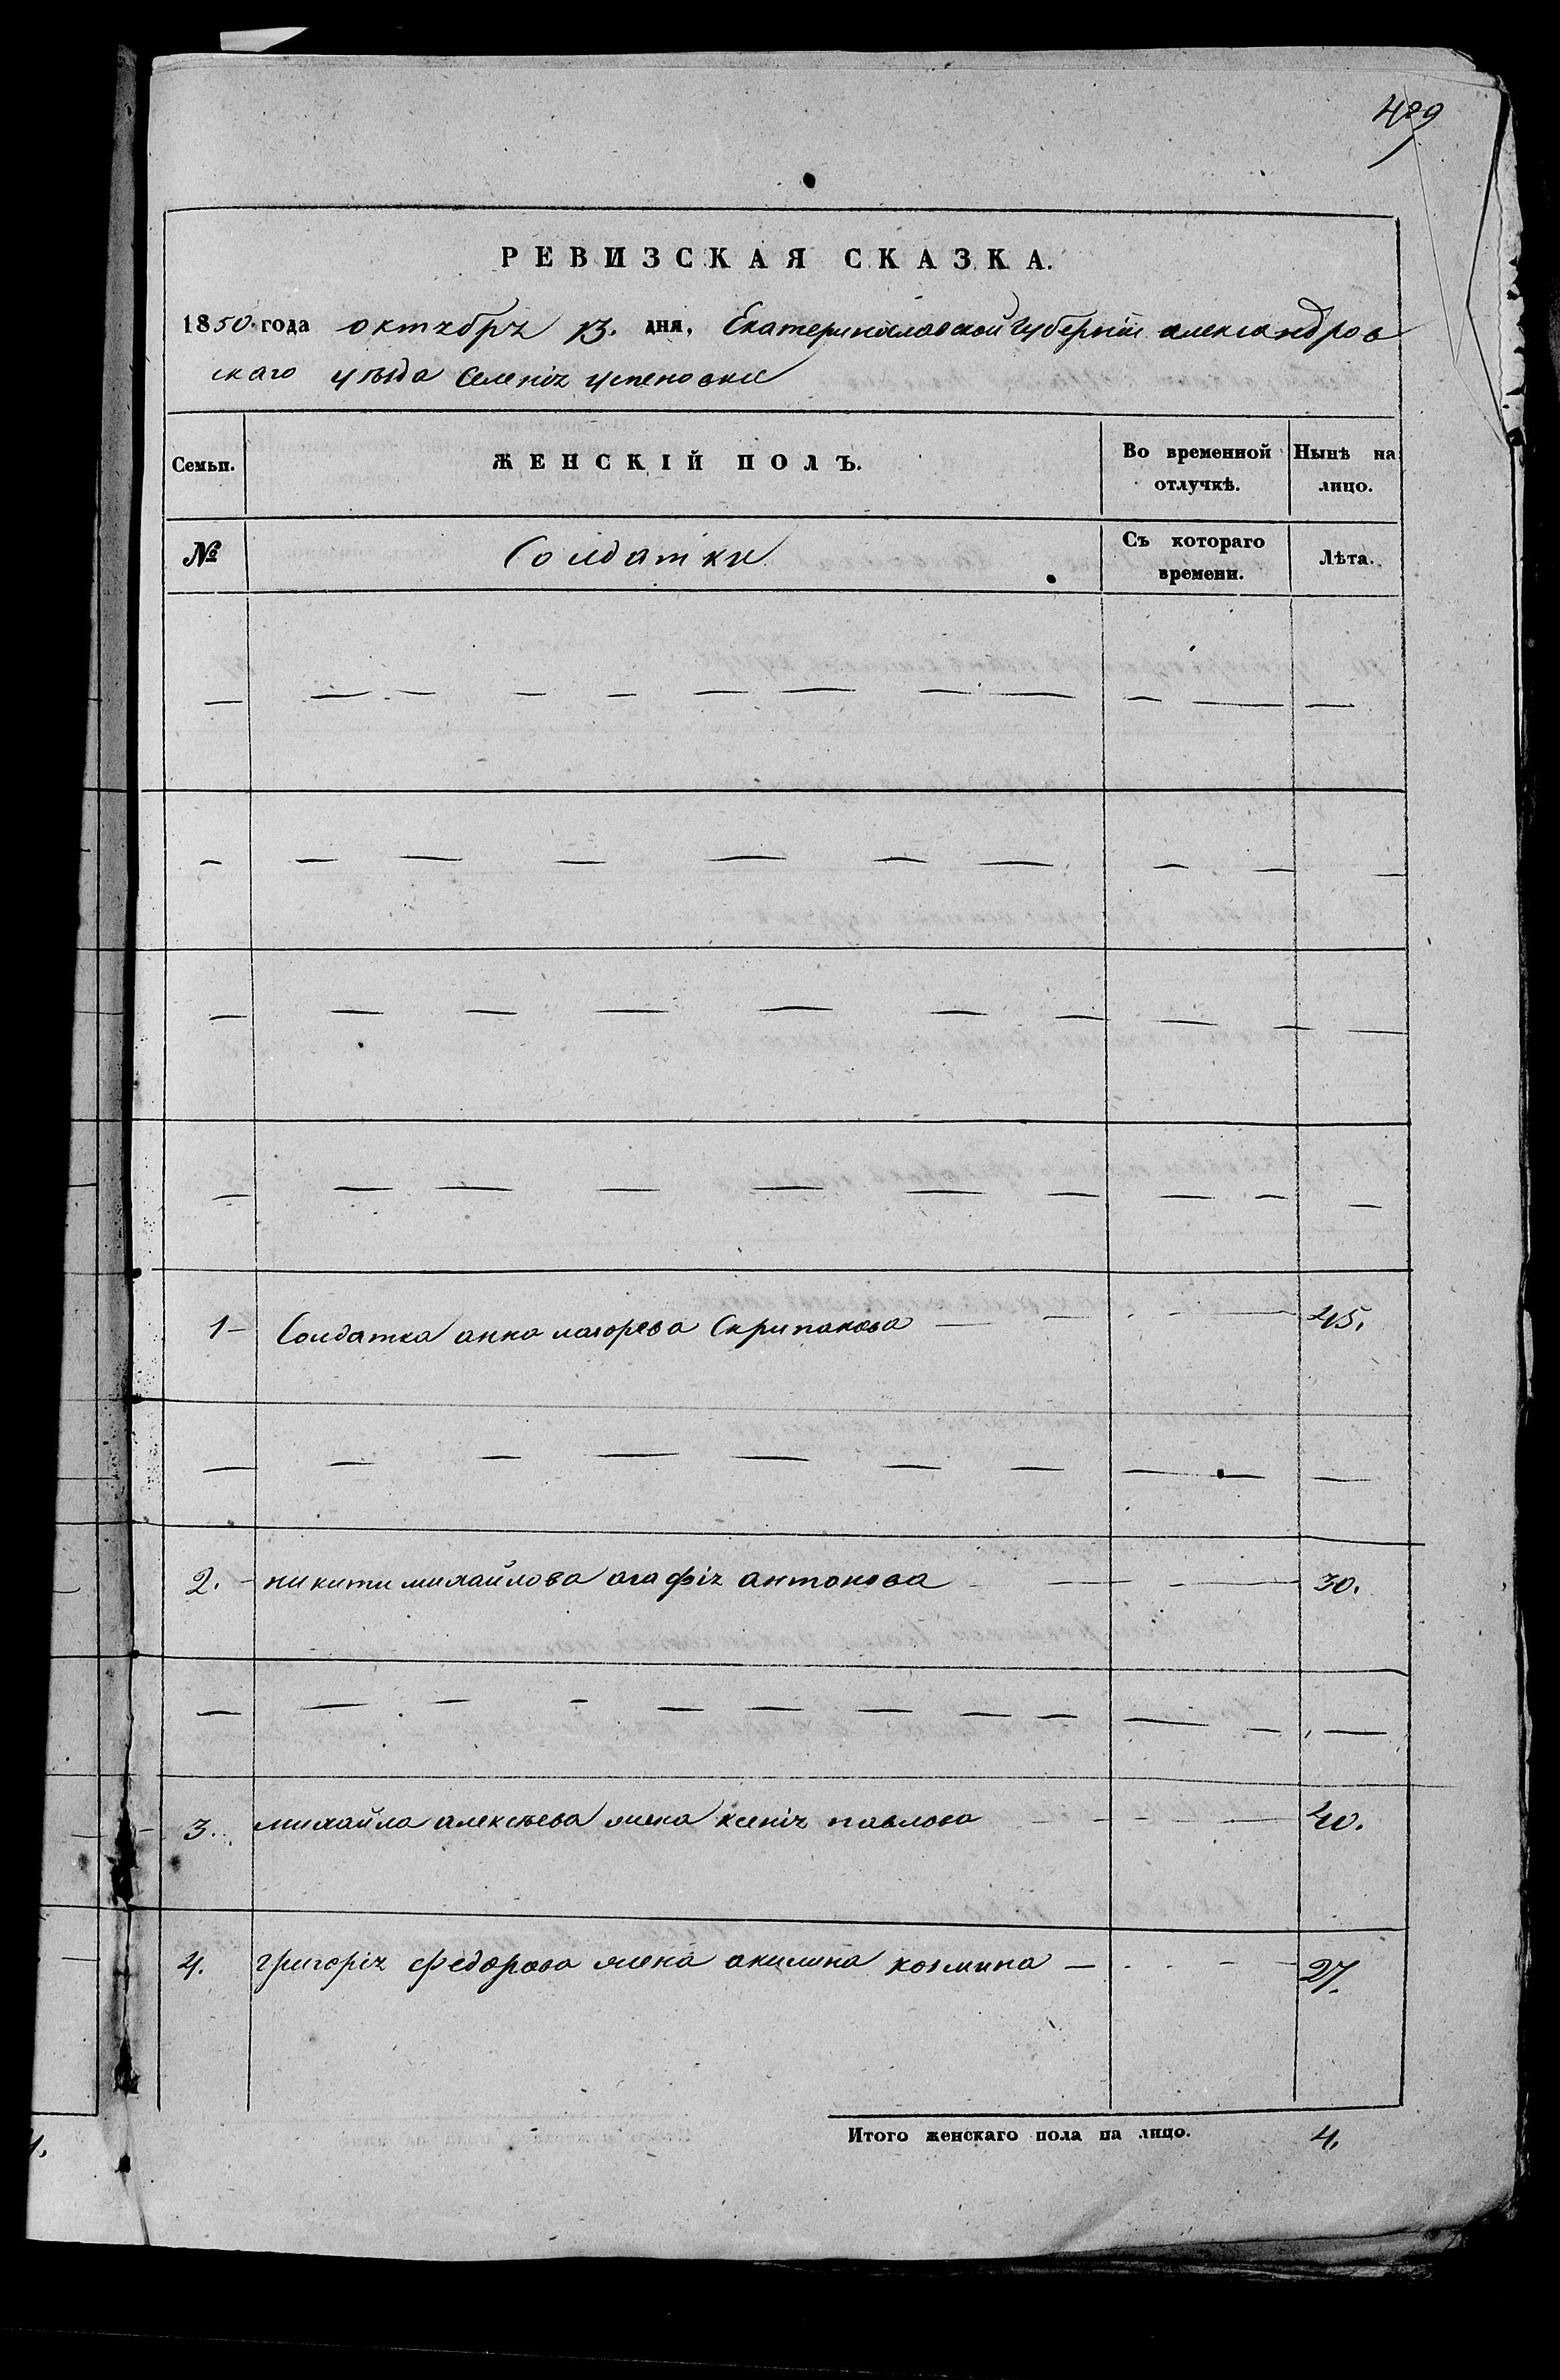 489
РЕВИЗСКАЯ СКАЗКА.
1850 года октября 13. дня, Екатеринославской Губернии александров
скаго уѣзда Селения успеновки
Семьи. ЖЕНСКІЙ ПОЛЪ. Во временной отлучкѣ. Нынѣ на лицо.
№ Солдатки Съ котораго времени. Лѣта.
— — — — — — — — — — —
— — — — — — — — — —
— — — — — — — — — —
— — — — — — — — — —
1 — Солдатка анна Скрипакова — — 45.
— — — — — — — — — —
2. — никити михайлова агафія антонова — — 30.
— — — — — — — — — — — —
3. михайла алексѣева жена ксенія павлова — — 40.
4. григорія федорова жена акилина козмина — — 27.
Итого женскаго пола на лицо. 4.
1.